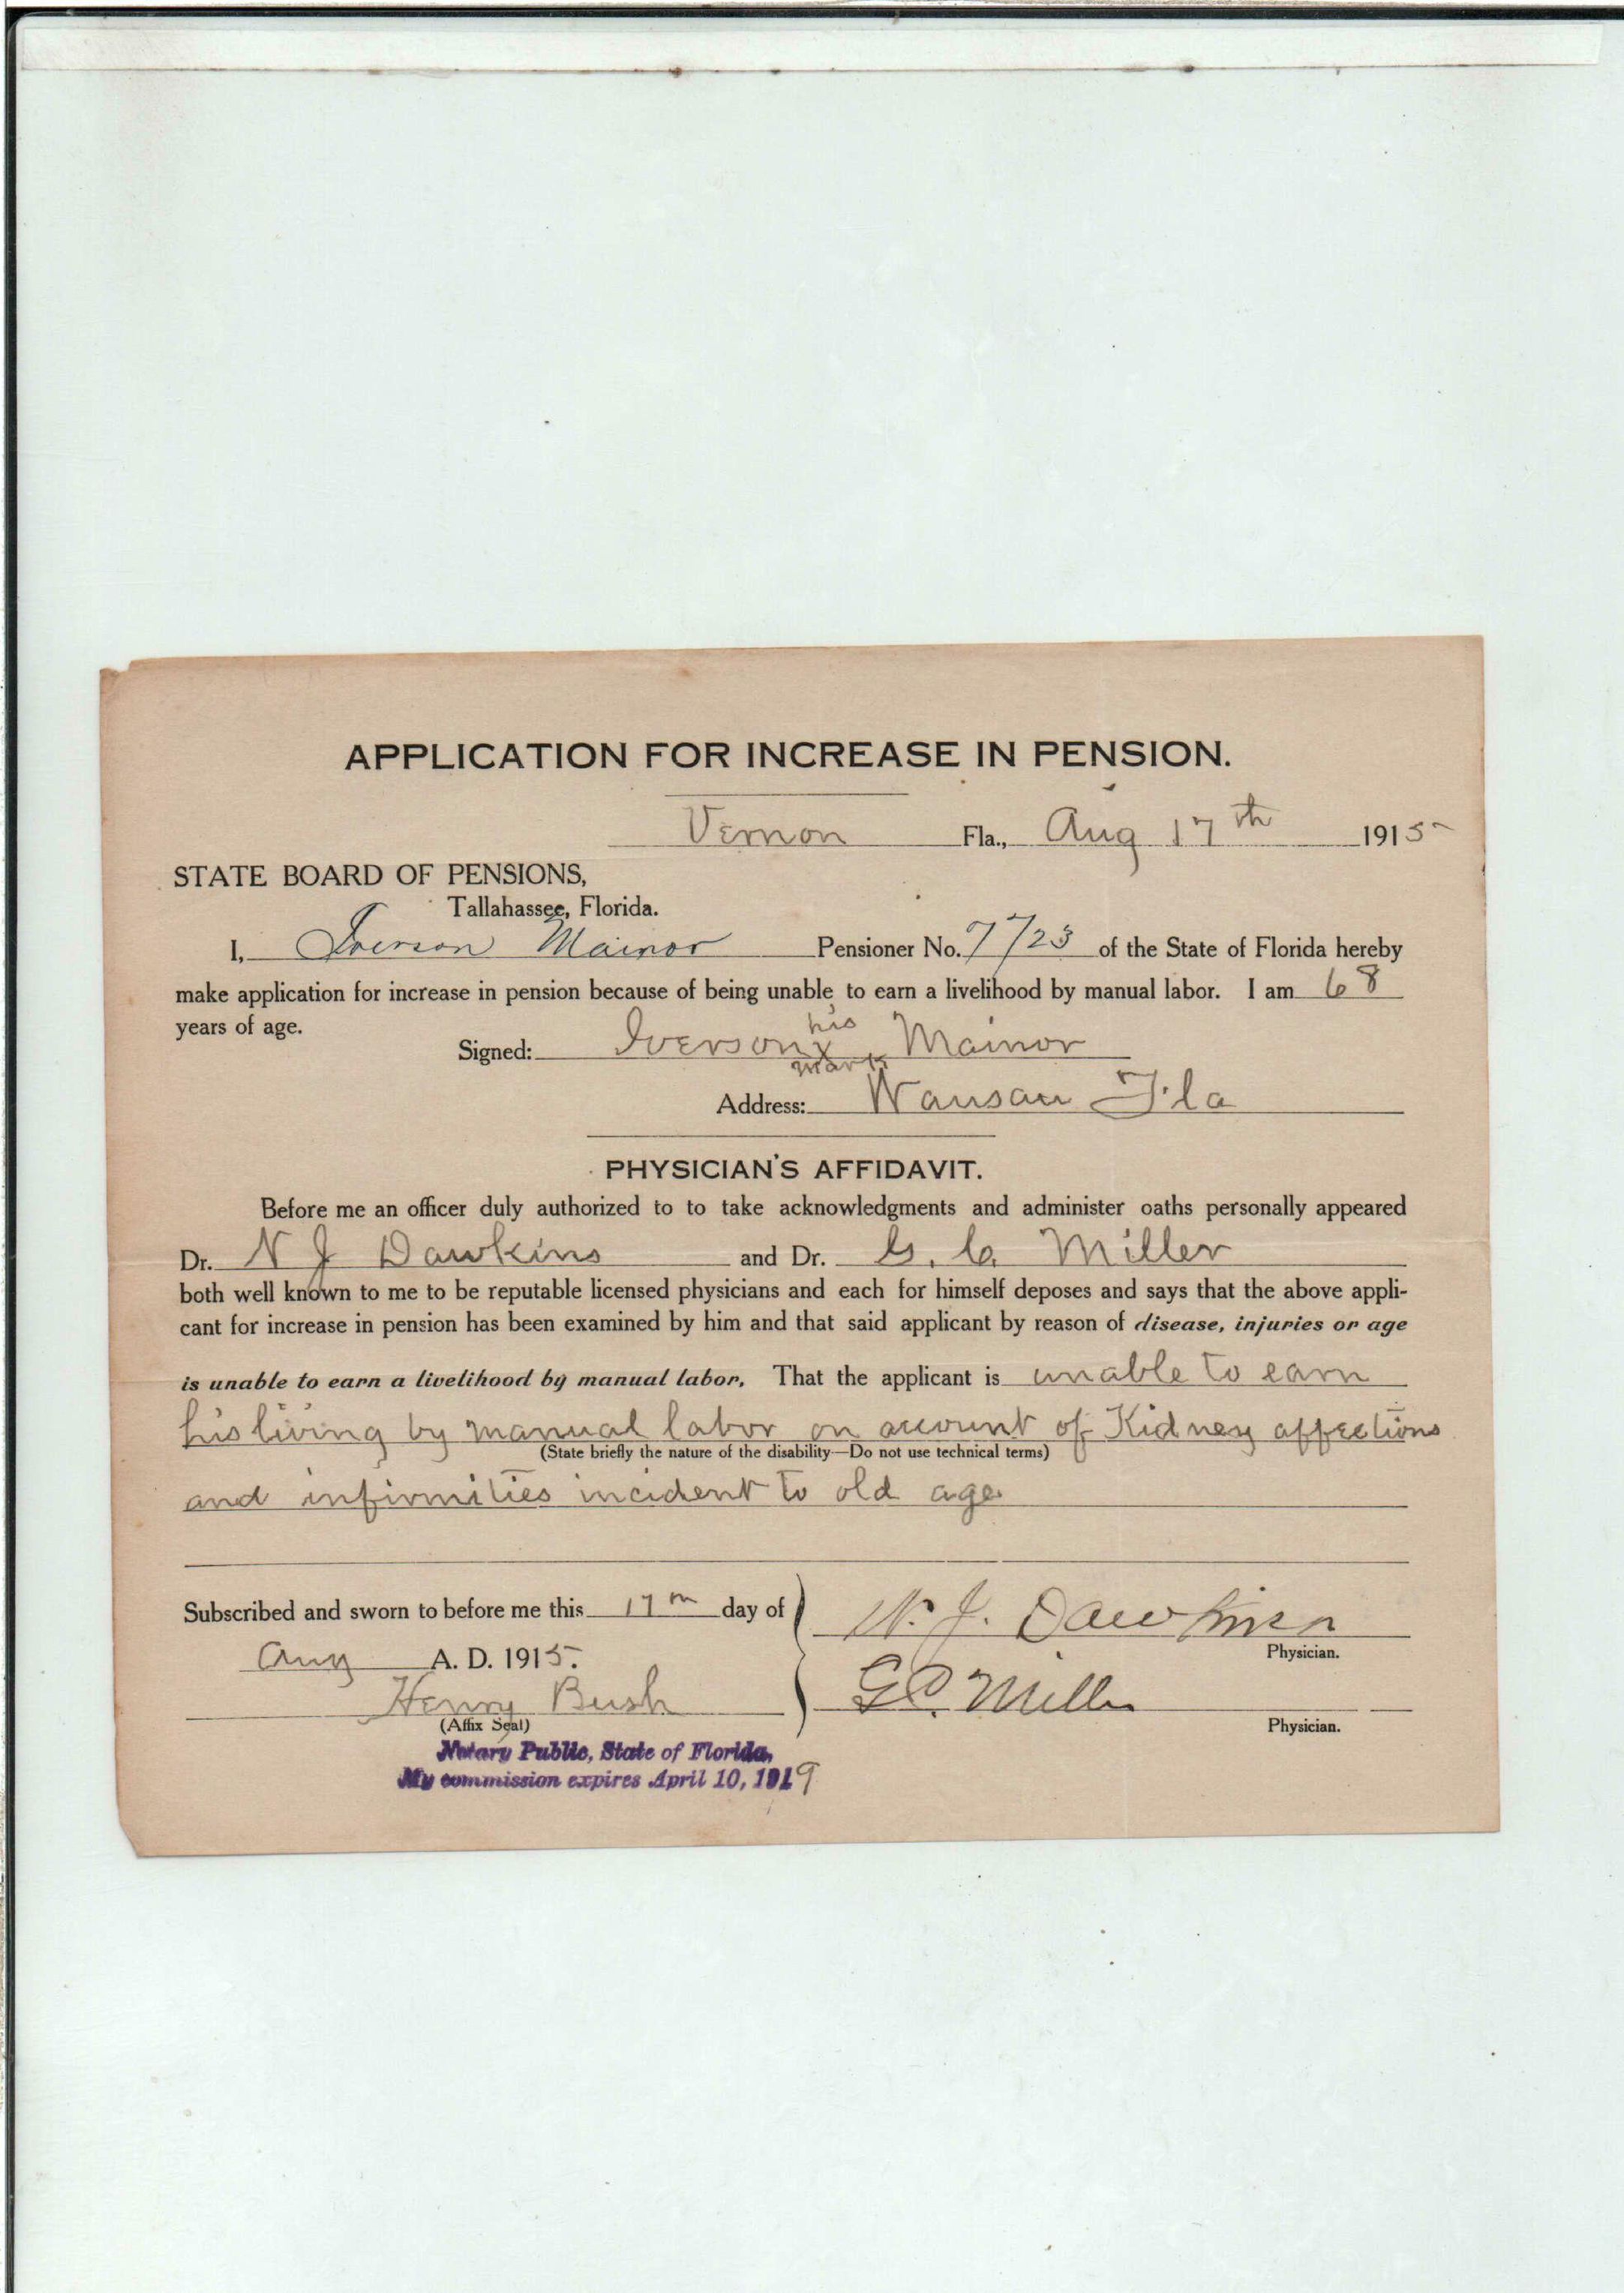 APPLICATION FOR INCREASE IN PENSION.
Vernon Fla., Aug 17th 1915
STATE BOARD OF PENSIONS,
Tallahassee, Florida.
I, Iverson Mainor Pensioner No. 7723 of the State of Florida hereby
make application for increase in pension because of being unable to earn a livelihood by manual labor. I am 68
years of age.
his
Signed: Iverson x Mainor
mark
Address: Wausau Fla
PHYSICIAN'S AFFIDAVIT.
Before me an officer duly authorized to to take acknowledgments and administer oaths personally appeared
Dr. N J Dawkins and Dr. G. C. Miller
both well known to me to be reputable licensed physicians and each for himself deposes and says that the above appli-
cant for increase in pension has been examined by him and that said applicant by reason of disease, injuries or age
is unable to earn a livelihood by manual labor. That the applicant is unable to earn
his living by manual labor on account of Kidney affections
(State briefly the nature of the disability—Do not use technical terms)
and infirmities incident to old age
Subscribed and sworn to before me this 17th day of
Aug A. D. 1915.
Henry Bush
(Affix Seal)
Notary Public, State of Florida,
My commission expires April 10, 1919
N. J. Dawkins
Physician.
G C. Miller
Physician.